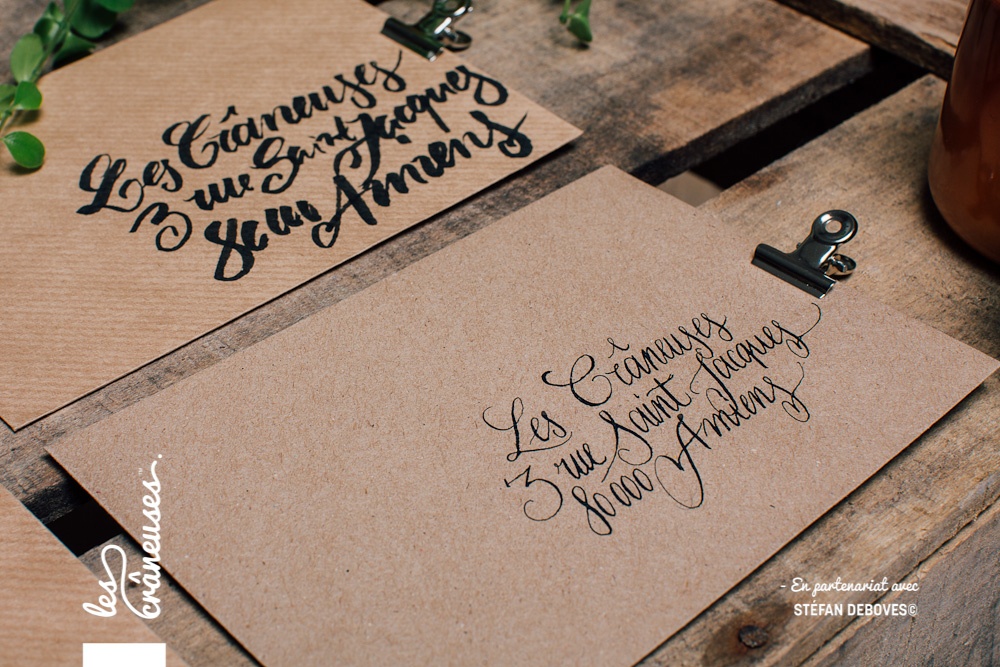 Les Crâneuses
3 rue Saint Jacques
80000 Amiens
Les Crâneuses
3 rue Saint Jacques
80000 Amiens
les crâneuses™.
- En partenariat avec
STÉFAN DEBOVES©